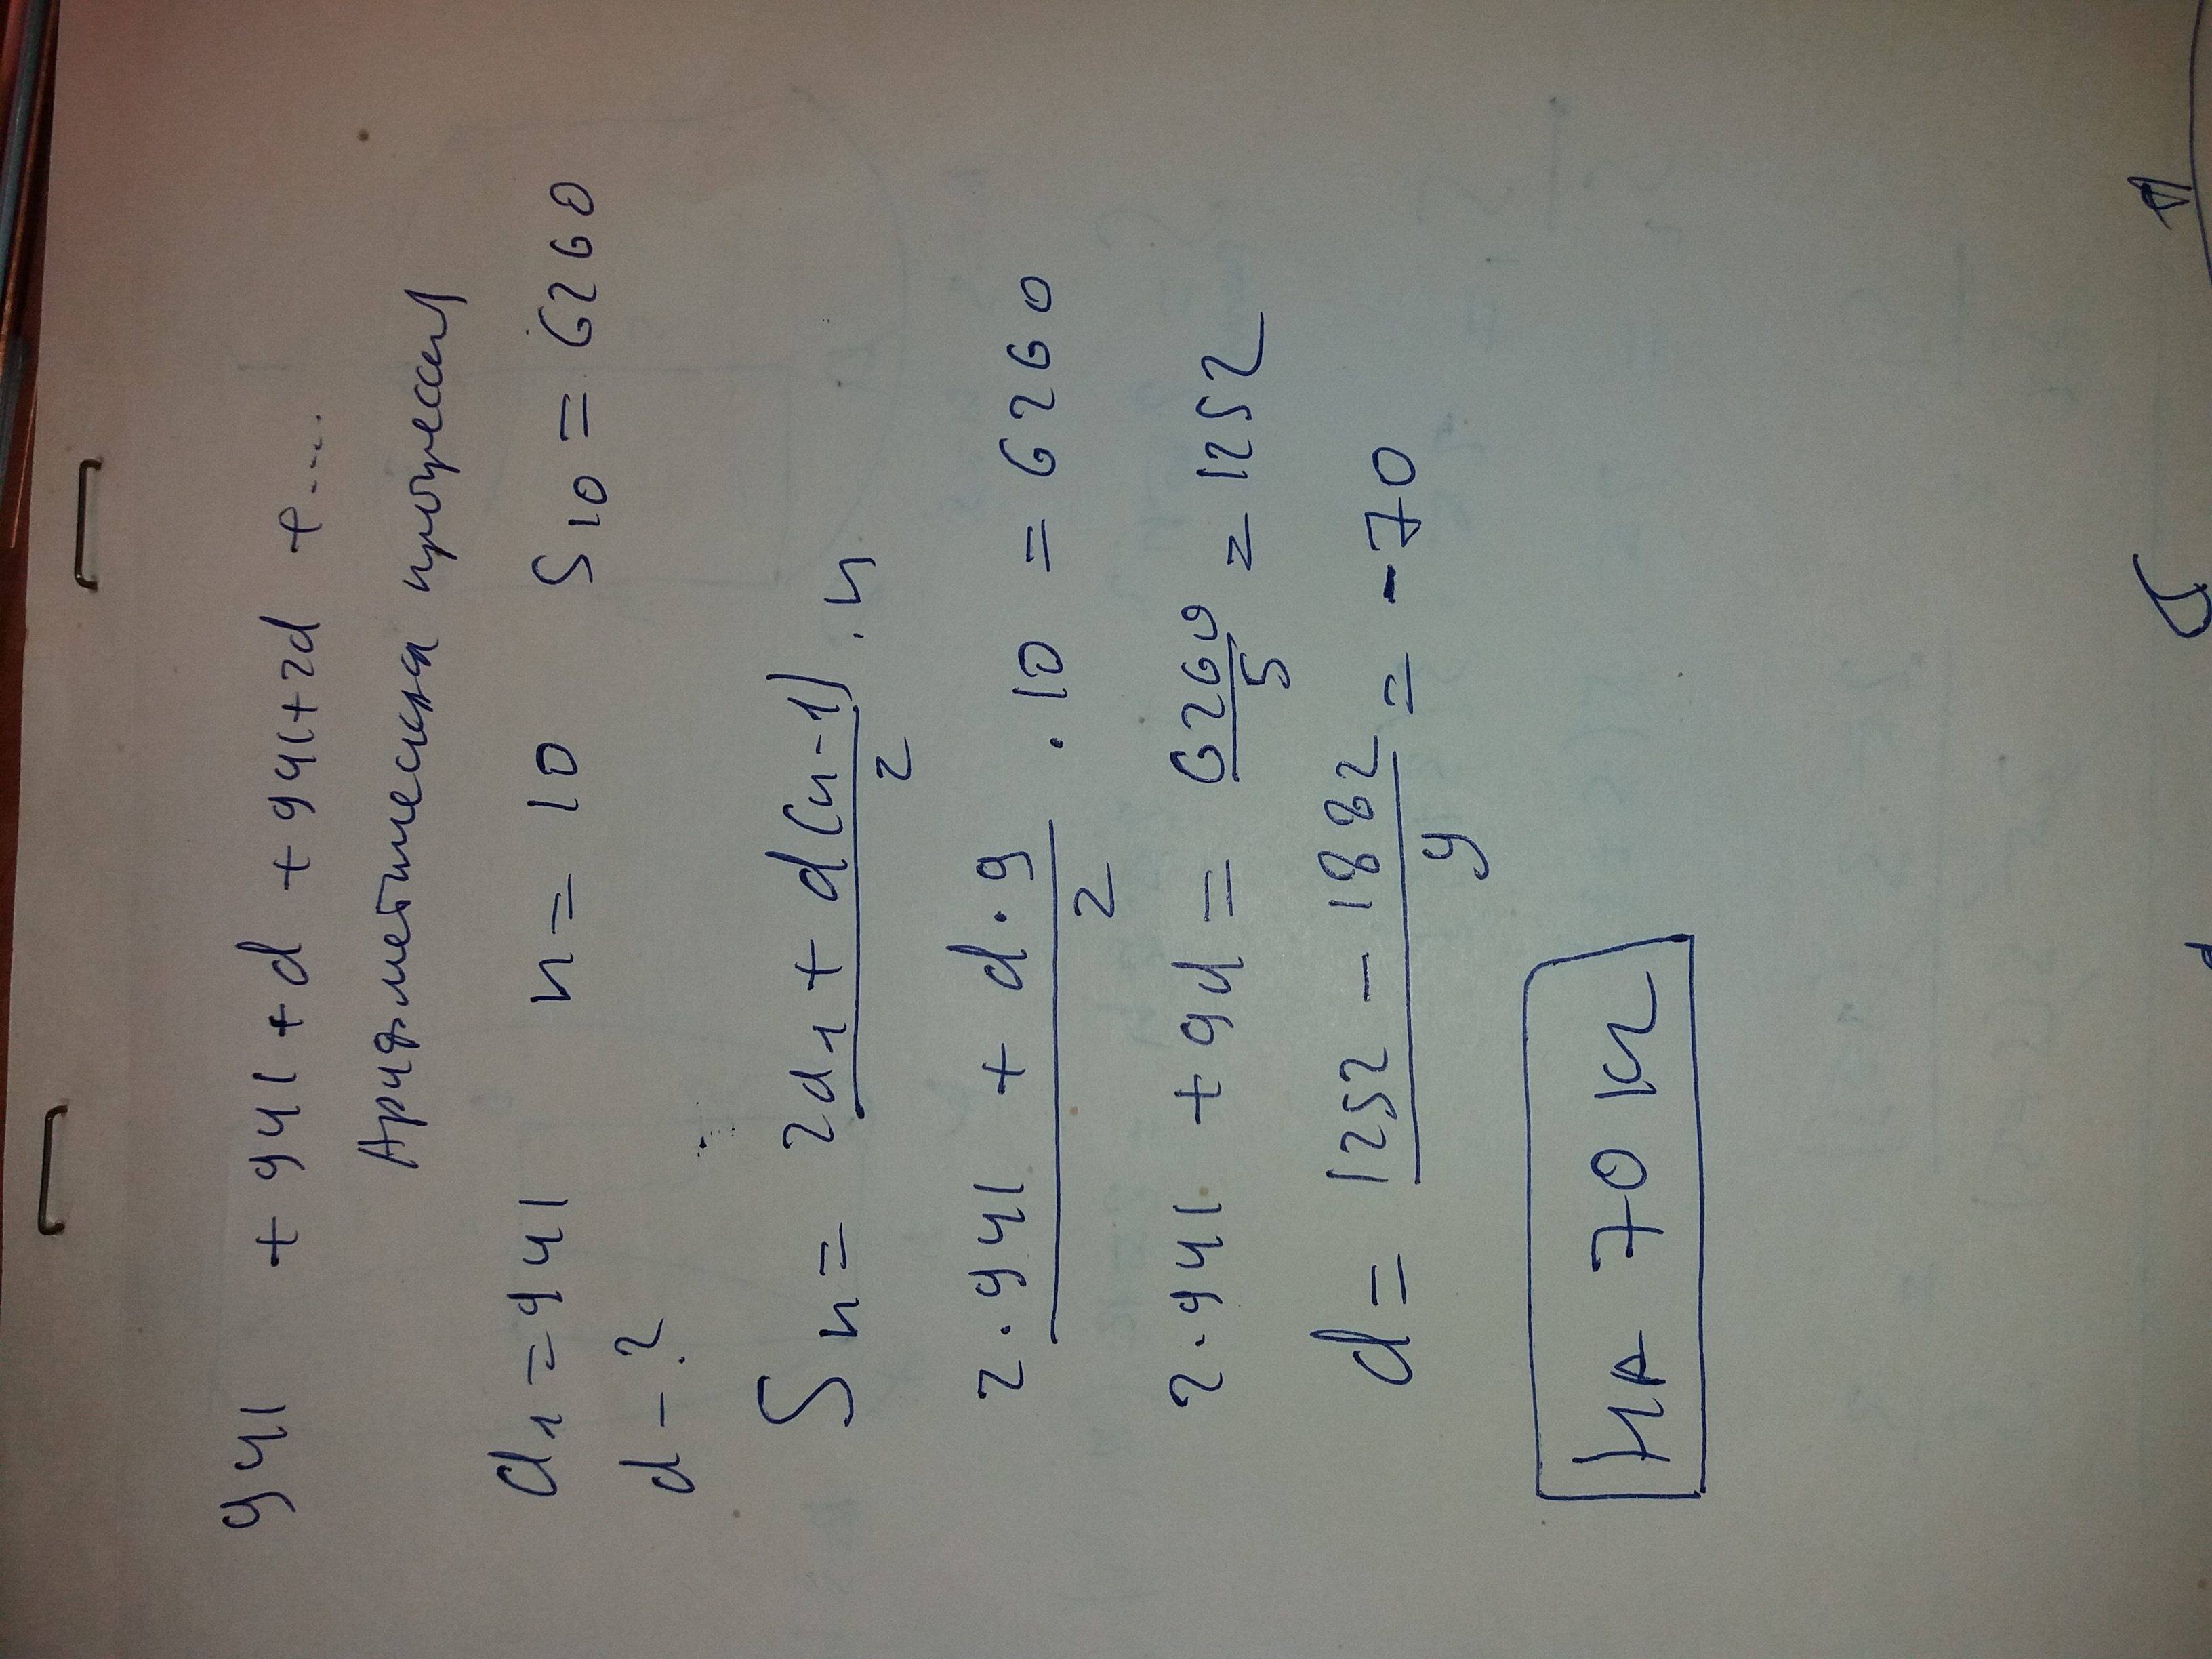 941 + 941 + d + 941 + 2d + ....
Арифметическа прогрессия
a₁ = 941 n = 10 S₁₀ = 6260
d - ?
Sn = (2a₁ + d(n-1))/2 · n
(2·941 + d·9)/2 · 10 = 6260
2·941 + 9d = 6260/5 = 1252
d = (1252 - 1882)/9 = -70
НА 70 К